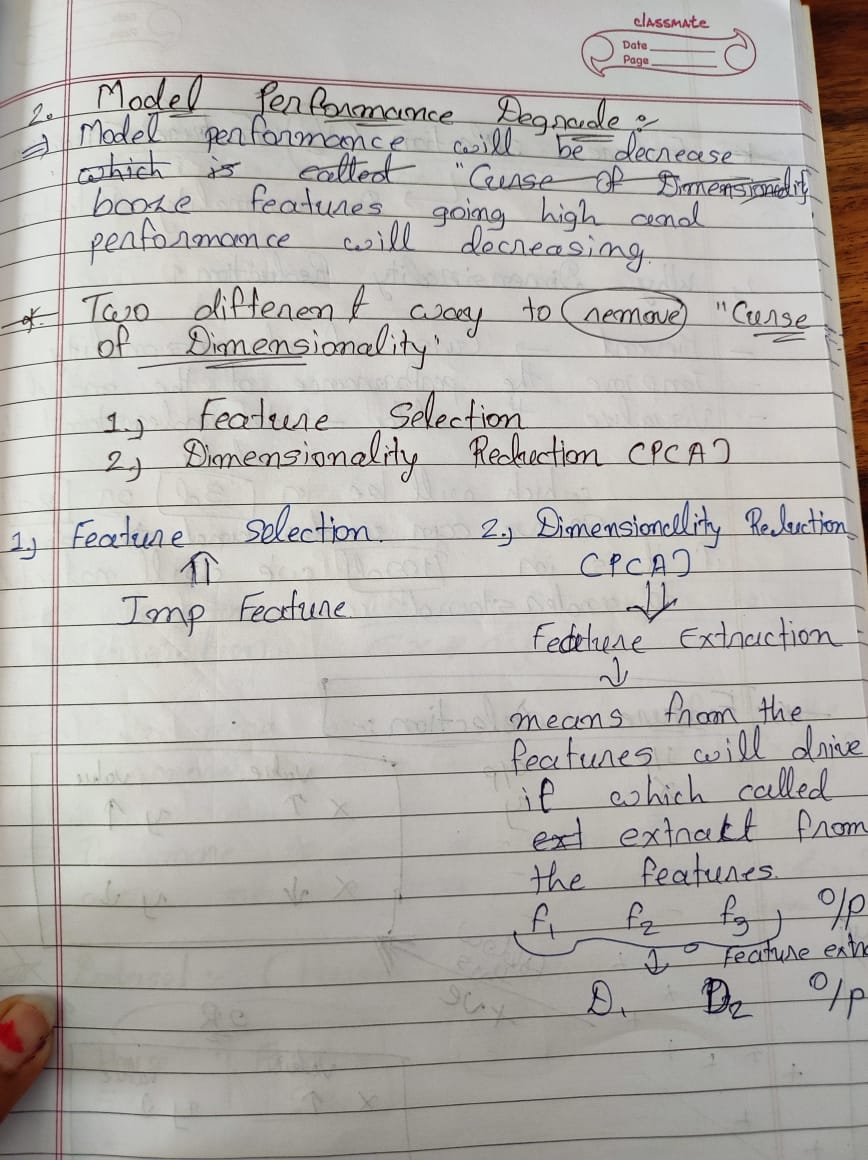 classmate
Date
Page
2. Model Performance Degrade :
⇒ Model performance will be decrease
which is called "Curse of Dimensionality
booze features going high and
performance will decreasing.
* Two different way to remove "Curse
of Dimensionality"
1.) Feature Selection
2.) Dimensionality Reduction (PCA)
1.) Feature Selection. 2.) Dimensionality Reduction
⇑ (PCA)
Imp Feature. ⇓
Feature Extraction
↓
means from the
features will drive
it which called
ext extrakt from
the features.
f1 f2 f3 O/p
↓ Feature extr
D1 D2 O/p